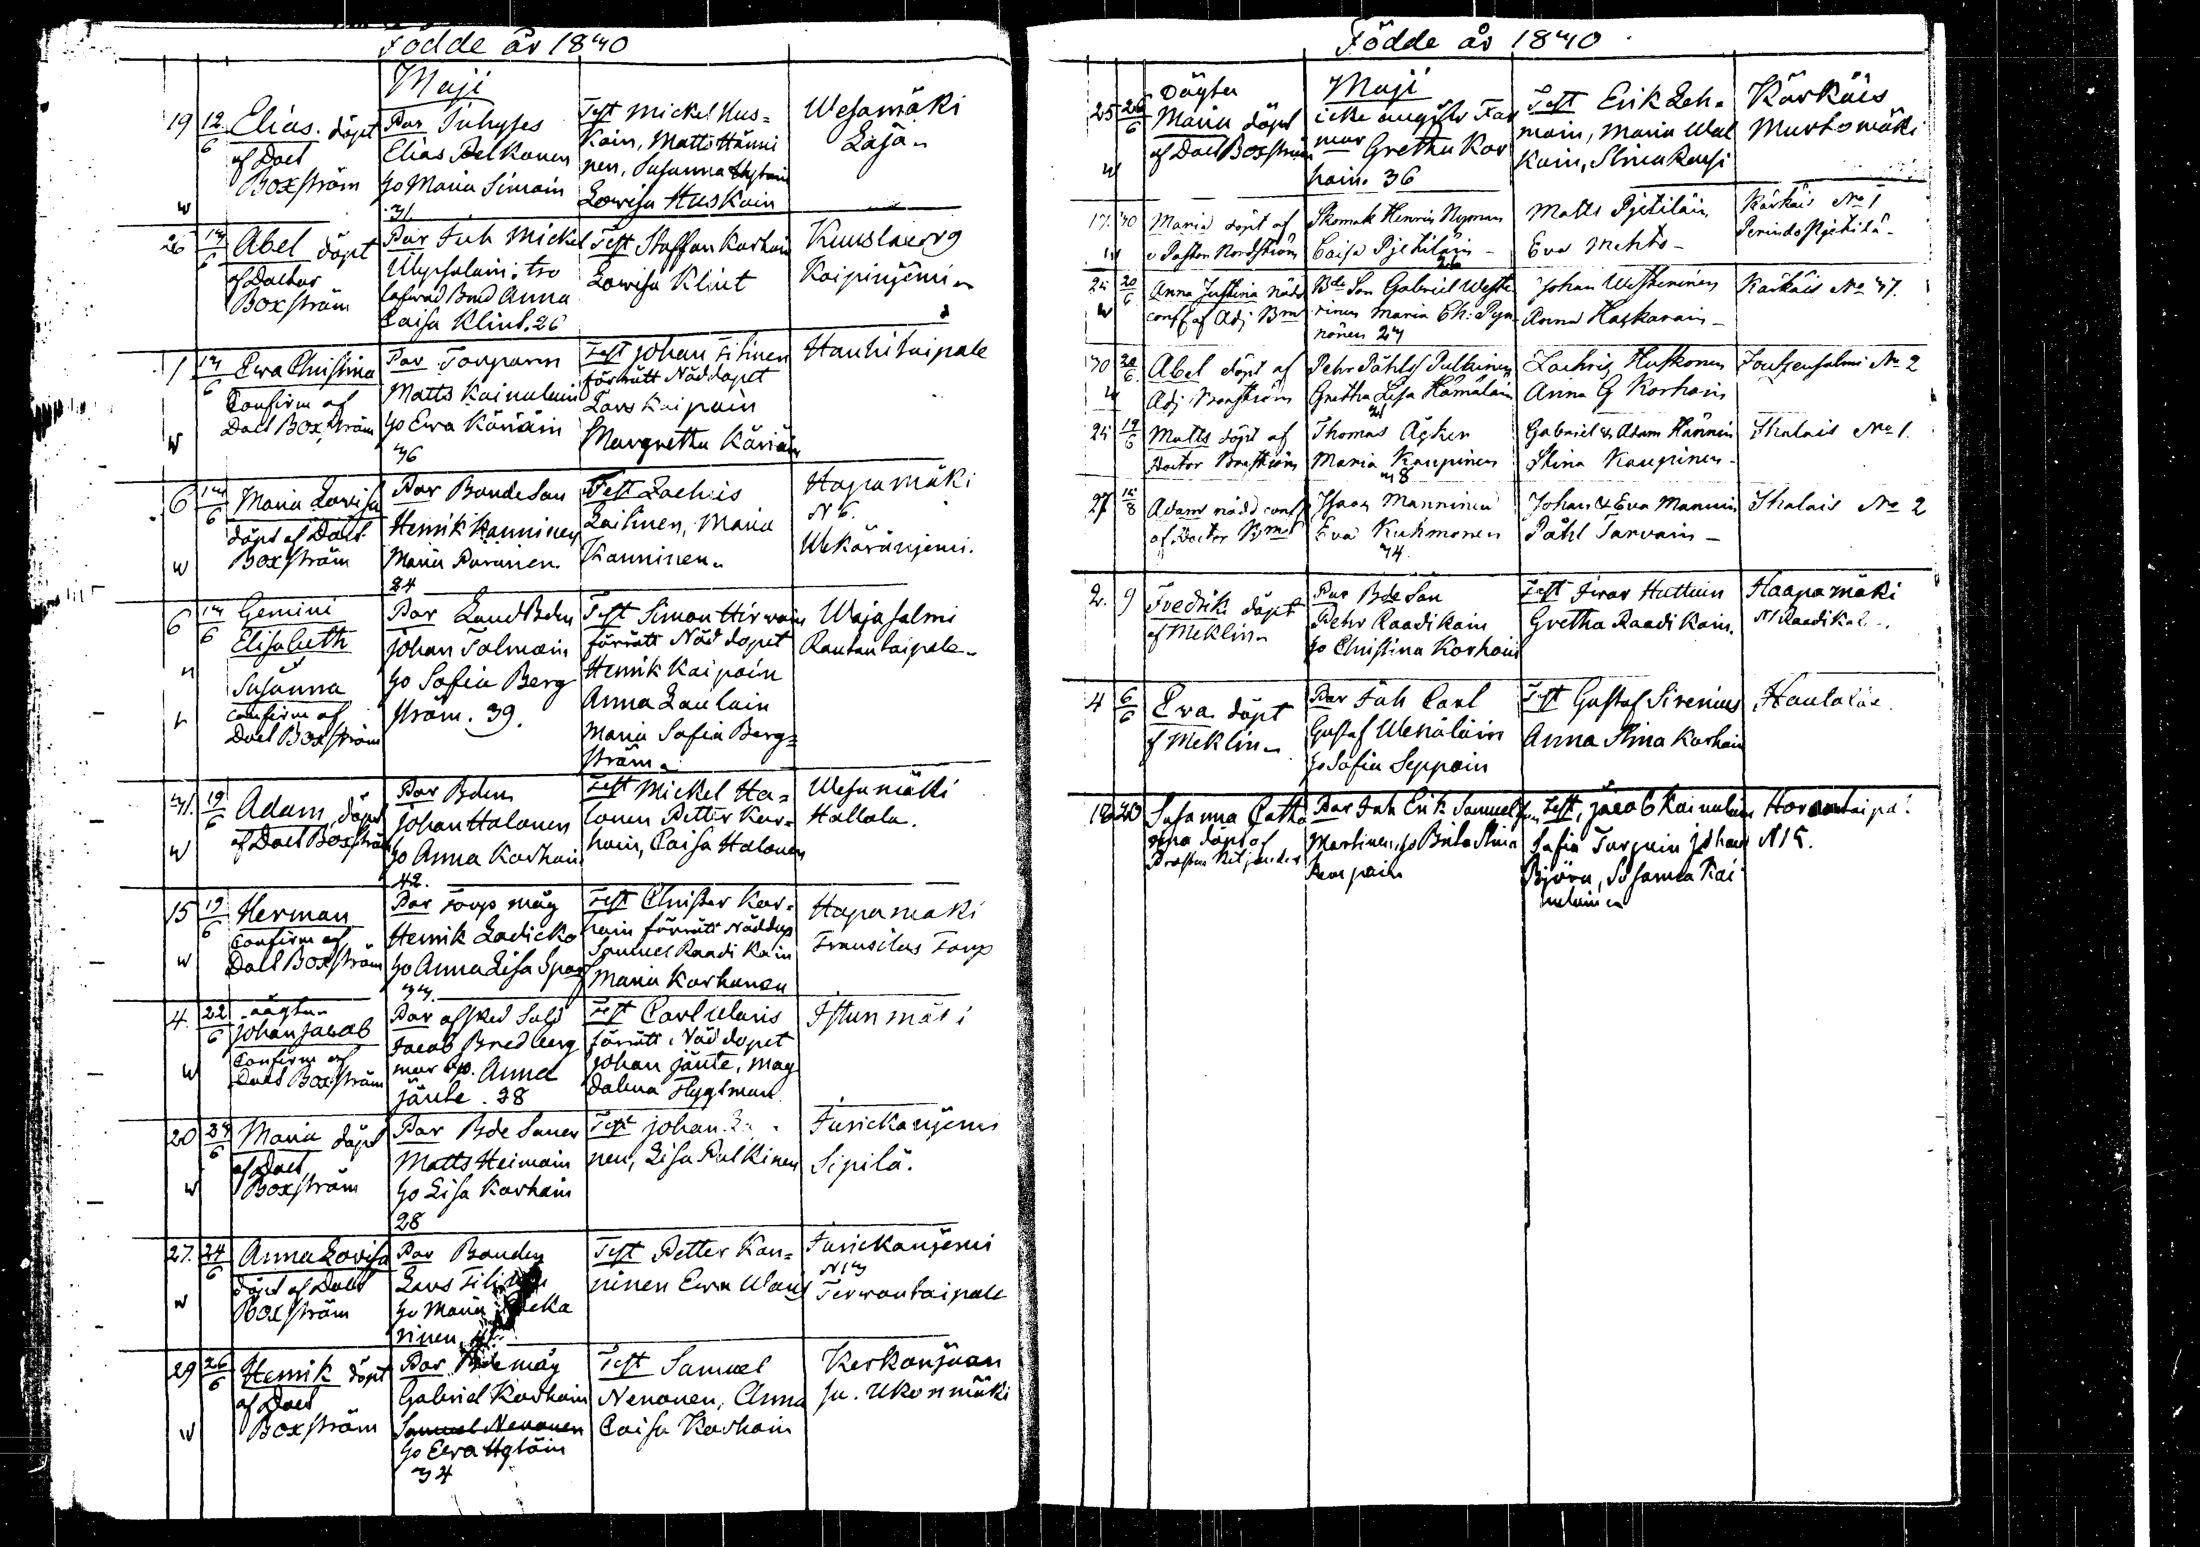 Födde år 1840
Maji
19 12/6 Elias. döpt
af Doct
Boxström
w
Par Inhyses
Elias Pelkonen
ho Maria Simoin
31.
Test Mickel Hus=
kain, Matts Hänni
nen, Susanna
Lowisa Huskain
Wesamäki
26 14/6 Abel döpt
af Doctor
Boxström
Par Inh Mickel
Caisa Klint. 26
Test Staffan Korhoin
Lowisa Klint
Kuuslaerg
Kaipinjemi
1 14/6 Ewa Christina
Confirm af
Doct Boxström
w
Par Torparen
Matts Kainulain
ho Ewa Käriäin
36
Test Johan Filinen
förrätt Nöddopet
Lars Kaipain
Margretha Käriäin
Hanhitaipale
6 14/6 Maria Lowisa
döpt af Doct
Boxström
w
Par Bonde Son
Henrik Kanninen
Maria Paranen
24
Test Zachris
Laitinen, Maria
Kanninen.
Hapamäki
N 6.
Ukäränjemi.
6 14/6 Gemini
Elisabeth
Susanna
Confirm af
Doct Boxström
Par Landbden
Johan Tolmain
ho Sofia Berg
ström. 39.
Test Simon Hirwain
förrätt Nöd dopet
Henrik Kaipain
Anna Laulain
Maria Sofia Berg=
ström.
Wajasalmi
Rautataipale.
31. 19/6 Adam, döpt
af Doct Boxström
w
Par Bden
Johan Halonen
ho Anna Korhoin
42.
Test Mickel Ha=
lonen Petter Kor=
hoin, Caisa Halonen
Wesamäki
Hallola.
15 19/6 Herman
Confirm af
Doct Boxström
w
Par Torp måg
Henrik Ladicko
ho Anna Lisa Sparf
34.
Test Christer Kor=
hoin förrätt Nöddop
Samuel Raadikain
Maria Korhonen
Hapamäki
Fransilas Torp
4. 22/6 oägta
Johan Jacob
Confirm af
Doct Boxström
w
Par afsked Sold
Jacob Bredberg
Anna
Jänte. 38
Test Carl
förrätt Nöd dopet
Johan Jänte, Mag
dalena Flygtman
Istunmäki
20 24/6 Maria döpt
af Doct
Boxström
w
Par Bde Sonen
Matts Heimoin
ho Lisa Korhoin
28
Test Johan
nen, Lisa Pulkinen
Jurickanjemi
Sipilä.
27. 24/6 Anna Lovisa
döpt af Doct
Boxström
w
Par Bonden
Lars
ho Maria
rinen
Test Petter Kan=
ninen Ewa
Jurickanjemi
N 14
Terwantaipale
29 26/6 Henrik döpt
af Doct
Boxström
w
Par Bde måg
Gabriel Korhoin
Samuel Nenonen
ho Ewa Hytöin
34
Test Samuel
Nenonen, Anna
Caisa Korhoin
Kerkonjoen
su. Ukonmäki
Födde år 1840
25 26/6 Oägta
Maria döpt
af Doct Boxström
w
Maji
icke angifv Far
mor Gretha Kor
hoin. 36
Test Erik Leh=
moin, Maria Wal
kain, Stina Karsi
Kärkäis
Murtomäki
17. 30 Maria döpt af
Paston Nordström
Skomak Henric Nyman
Caisa Pjetiläin
26
Matts Pjetiläin
Eva Mehto
Kärkäis No 1
Perinde Pjetilä
24 20/6 Anna Justina nödd
conf af Adj Bm
w
Bde Son Gabriel Weste
rinen Maria Ch: Pyn
nönen 24
Johan Westerinen
Anna Haskarain
Kärkäis No 47.
30 20/6 Abel döpt af
Adj Boxström
Pehr Påhls Pulkinen
Gretha Lisa Hämäläin
Zachris Huskonen
Anna G Korhoin
Joutzensalmi No 2
24 19/6 Matts döpt af
Doctor Boxström
Thomas Asken
Maria Kaupinen
38
Gabriel & Adam Hännin
Stina Kaupinen.
Ihalais No 1.
27 Adam nödd conf
af Doctor Bmst
Isaac Manninen
Eva Kuhmonen
34.
Johan & Eva Mannin
Påhl Tarvain
Ihalais No 2
2. 9 Fredrik döpt
af Meklin
Par Bde Son
Pehr Raadikain
ho Christina Korhoin
Test Ivar Huttuin
Gretha Raadikain.
Haapamäki
4 6/6 Eva döpt
af Meklin
Par Inh Carl
Gustaf Wenäläin
ho Sofia Seppoin
Test Gustaf Sirenius
Anna Stina Korhoin
18 20 Susanna Catha
rina döpt af
Par Inh Erik Samuels
Martinen, ho Brita Stina
Test, Jacob Kainulain
Sofia Turpein Johan
Björn, Susanna Kai
nulain
N 15.